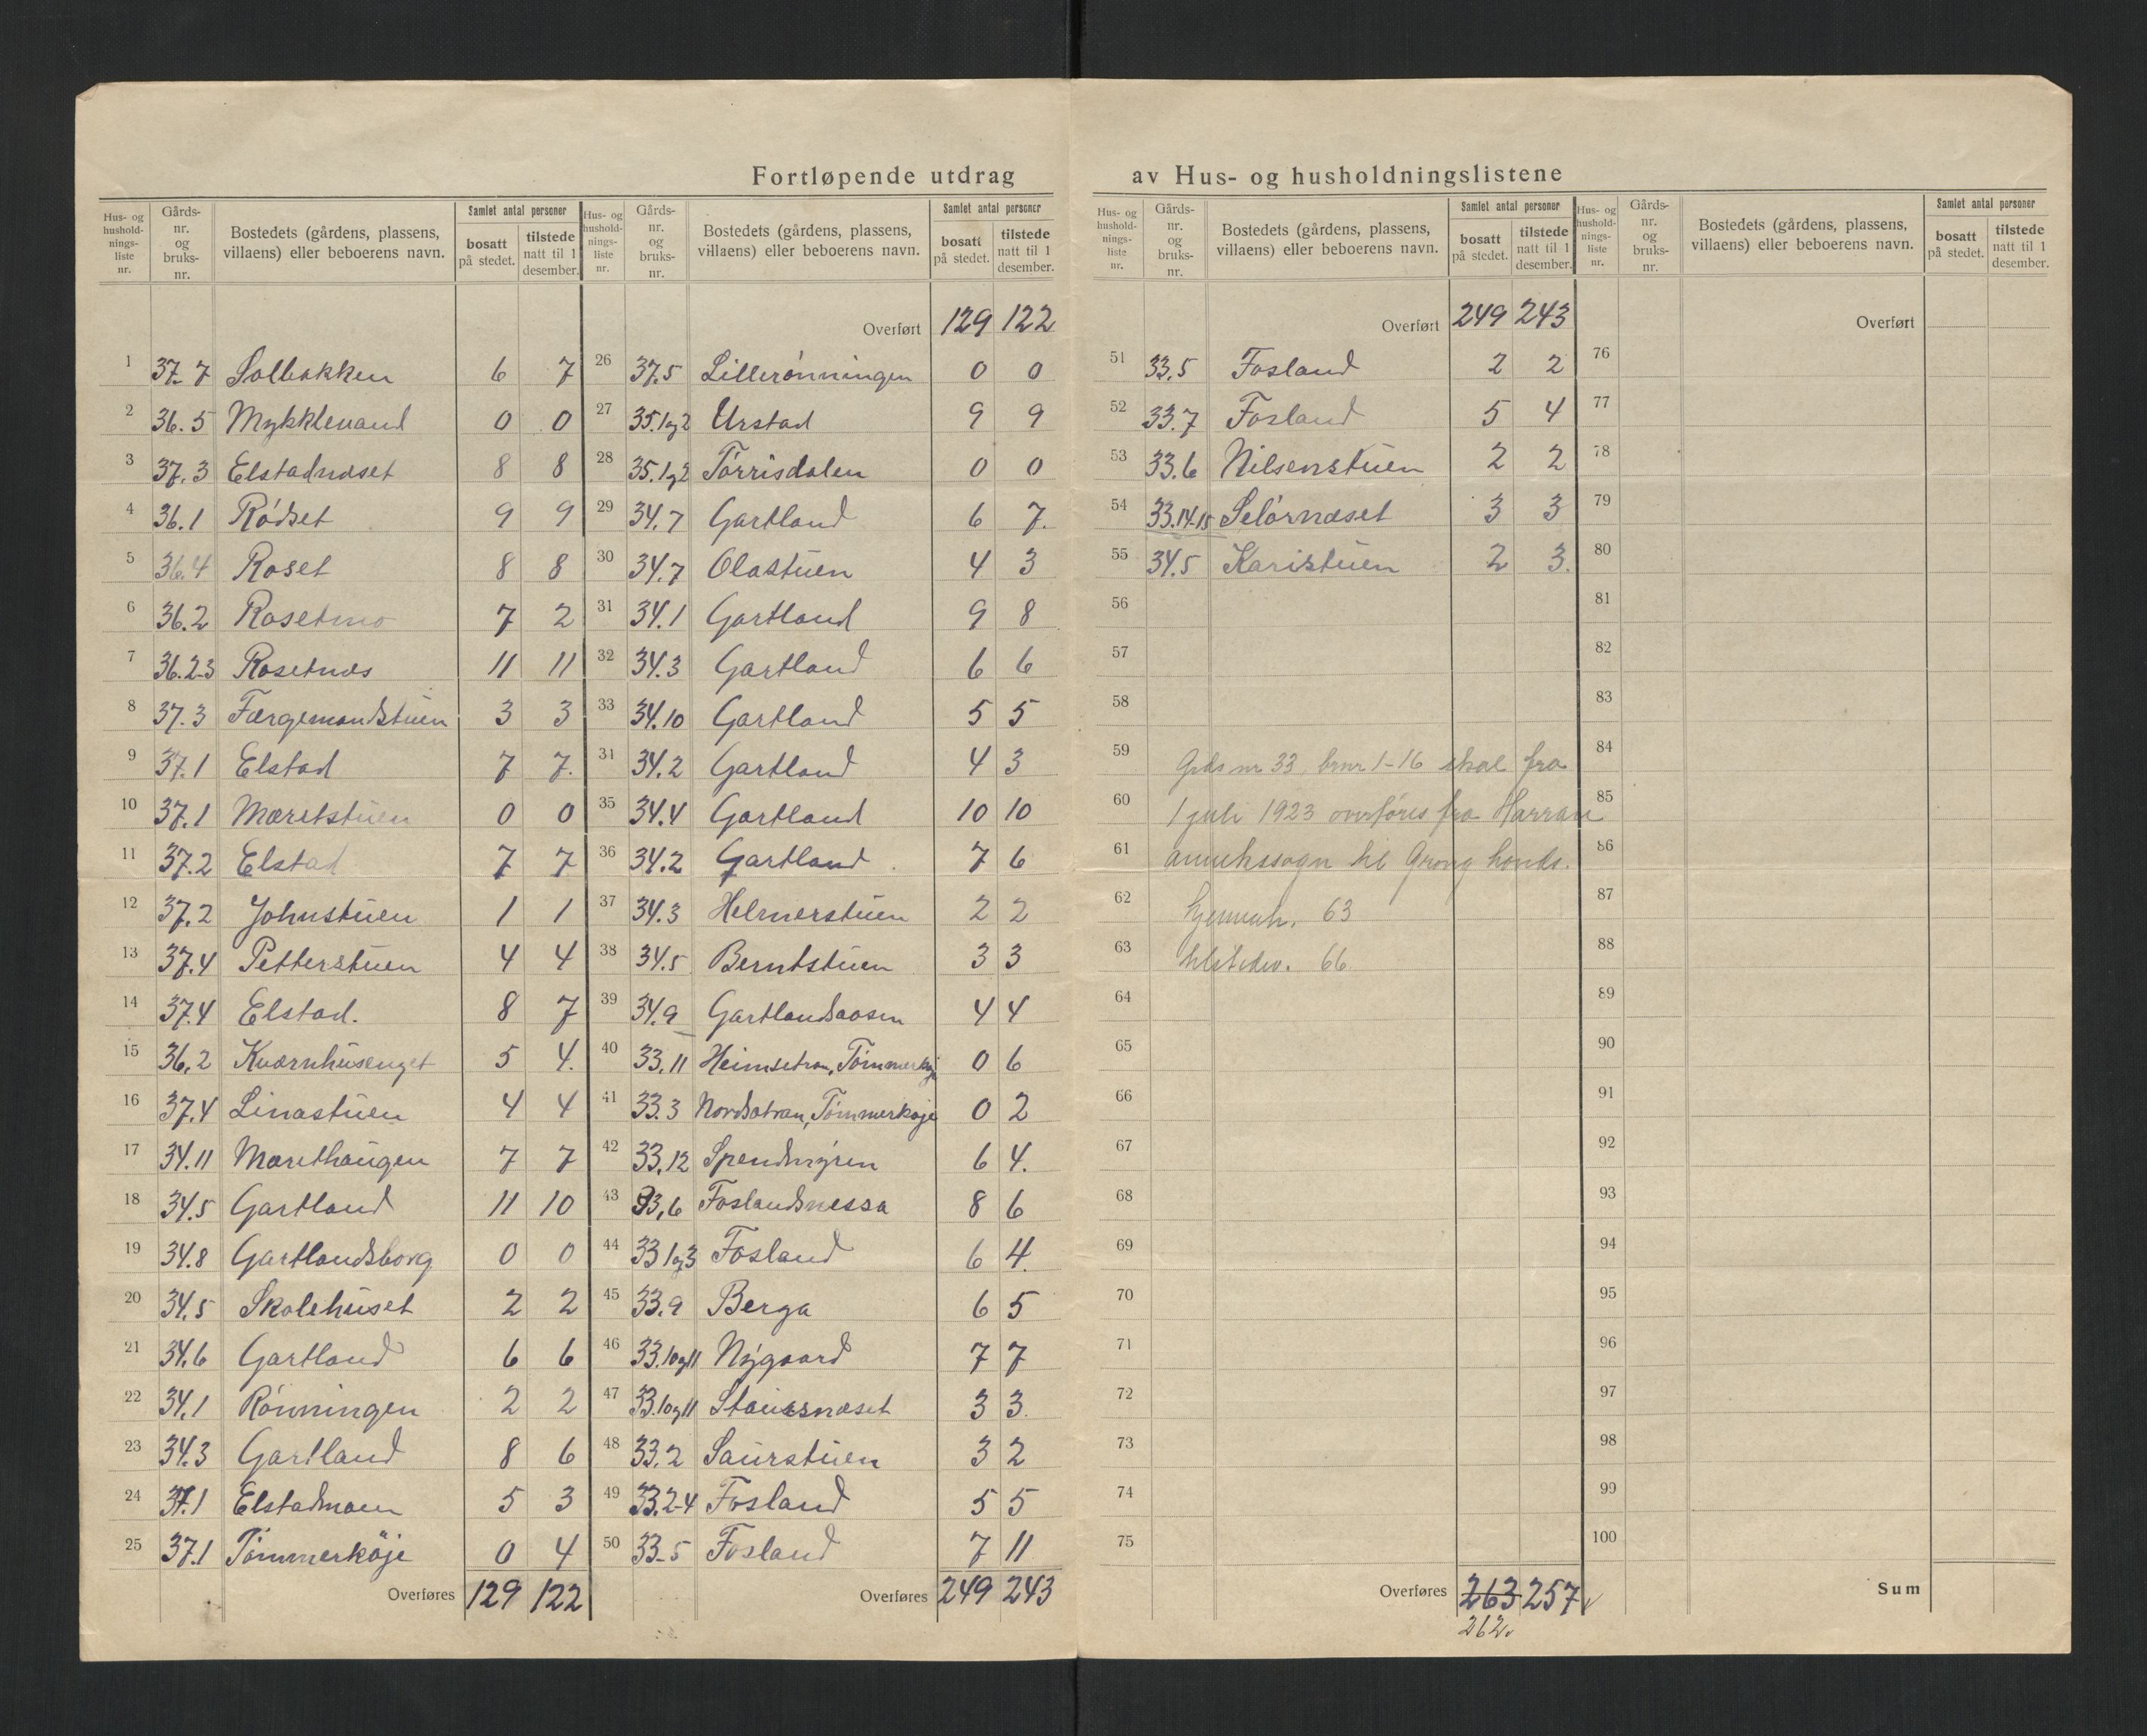 Fortløpende utdrag av Hus- og husholdningslistene
Hus- og hushold-nings-liste nr. Gårds-nr. og bruks-nr. Bostedets (gårdens, plassens, villaens) eller beboerens navn. Samlet antal personer bosatt på stedet. tilstede natt til 1 desember.
1 37.7 Solbakken 6 7
2 36.5 Mykklevand 0 0
3 37.3 Elstadnæset 8 8
4 36.1 Rødset 9 9
5 36.4 Roset 8 8
6 36.2 Rosetmo 7 2
7 36.2-3 Rosetnæs 11 11
8 37.3 Færgemandstuen 3 3
9 37.1 Elstad 7 7.
10 37.1 Mæretstuen 0 0
11 37.2 Elstad 7 7
12 37.2 Johnstuen 1 1
13 37.4 Petterstuen 4 4
14 37.4 Elstad. 8 7
15 36.2 Kværnhusenget 5 4.
16 37.4 Linastuen 4 4
17 34.11 Mærethaugen 7 7
18 34.5 Gartland 11 10
19 34.8 Gartlandsborg 0 0
20 34.5 Skolehuset 2 2
21 34.6 Gartland 6 6
22 34.1 Rønningen 2 2
23 34.3 Gartland 8 6
24 37.1 Elstadmoen 5 3
25 37.1 Tømmerkøje 0 4
Overføres 129 122
Hus- og hushold-nings-liste nr. Gårds-nr. og bruks-nr. Bostedets (gårdens, plassens, villaens) eller beboerens navn. Samlet antal personer bosatt på stedet. tilstede natt til 1 desember.
Overført 129 122
26 37.5 Lillerønningen 0 0
27 35.1og2 Urstad 9 9
28 35.1og2 Tørrisdalen 0 0
29 34.7 Gartland 6 7.
30 34.7 Olastuen 4 3
31 34.1 Gartland 9 8
32 34.3 Gartland 6 6
33 34.10 Gartland 5 5
34 34.2 Gartland 4 3
35 34.4 Gartland 10 10
36 34.2 Gartland 7 6
37 34.3 Helmerstuen 2 2
38 34.5 Berntstuen 3 3
39 34.9 Gartlandsaasen 4 4
40 33.11 Heimsetran, Tømmerkøje 0 6
41 33.3 Nordsetran, Tømmerkøje 0 2
42 33.12 Spendmyren 6 4.
43 33.6 Foslandsnessa 8 6
44 33 1og3 Fosland 6 4.
45 33.9 Berga 6 5
46 33.10og11 Nygaard 7 7
47 33.10og11 3 3.
48 33.2 Saurstuen 3 2
49 33.2-4 Fosland 5 5
50 33-5 Fosland 7 11
Overføres 249 243
Hus- og hushold-nings-liste nr. Gårds-nr. og bruks-nr. Bostedets (gårdens, plassens, villaens) eller beboerens navn. Samlet antal personer bosatt på stedet. tilstede natt til 1 desember.
Overført 249 243
51 33.5 Fosland 2 2
52 33.7 Fosland 5 4
53 33.6 Nilsenstuen 2 2
54 33.14-15 Selørnæset 3 3
55 34.5 Karistuen 2 3.
56
57
58
59 Gdsnr 33, brnr 1-16 skal fra
60 1 juli 1923 overføres fra Harran
61 annekssogn til Grong hovds.
62 hjemmeh. 63
63 tilstedev. 66
64
65
66
67
68
69
70
71
72
73
74
75
Overføres 263 257
262.
Hus- og hushold-nings-liste nr. Gårds-nr. og bruks-nr. Bostedets (gårdens, plassens, villaens) eller beboerens navn. Samlet antal personer bosatt på stedet. tilstede natt til 1 desember.
Overført
76
77
78
79
80
81
82
83
84
85
86
87
88
89
90
91
92
93
94
95
96
97
98
99
100
Sum